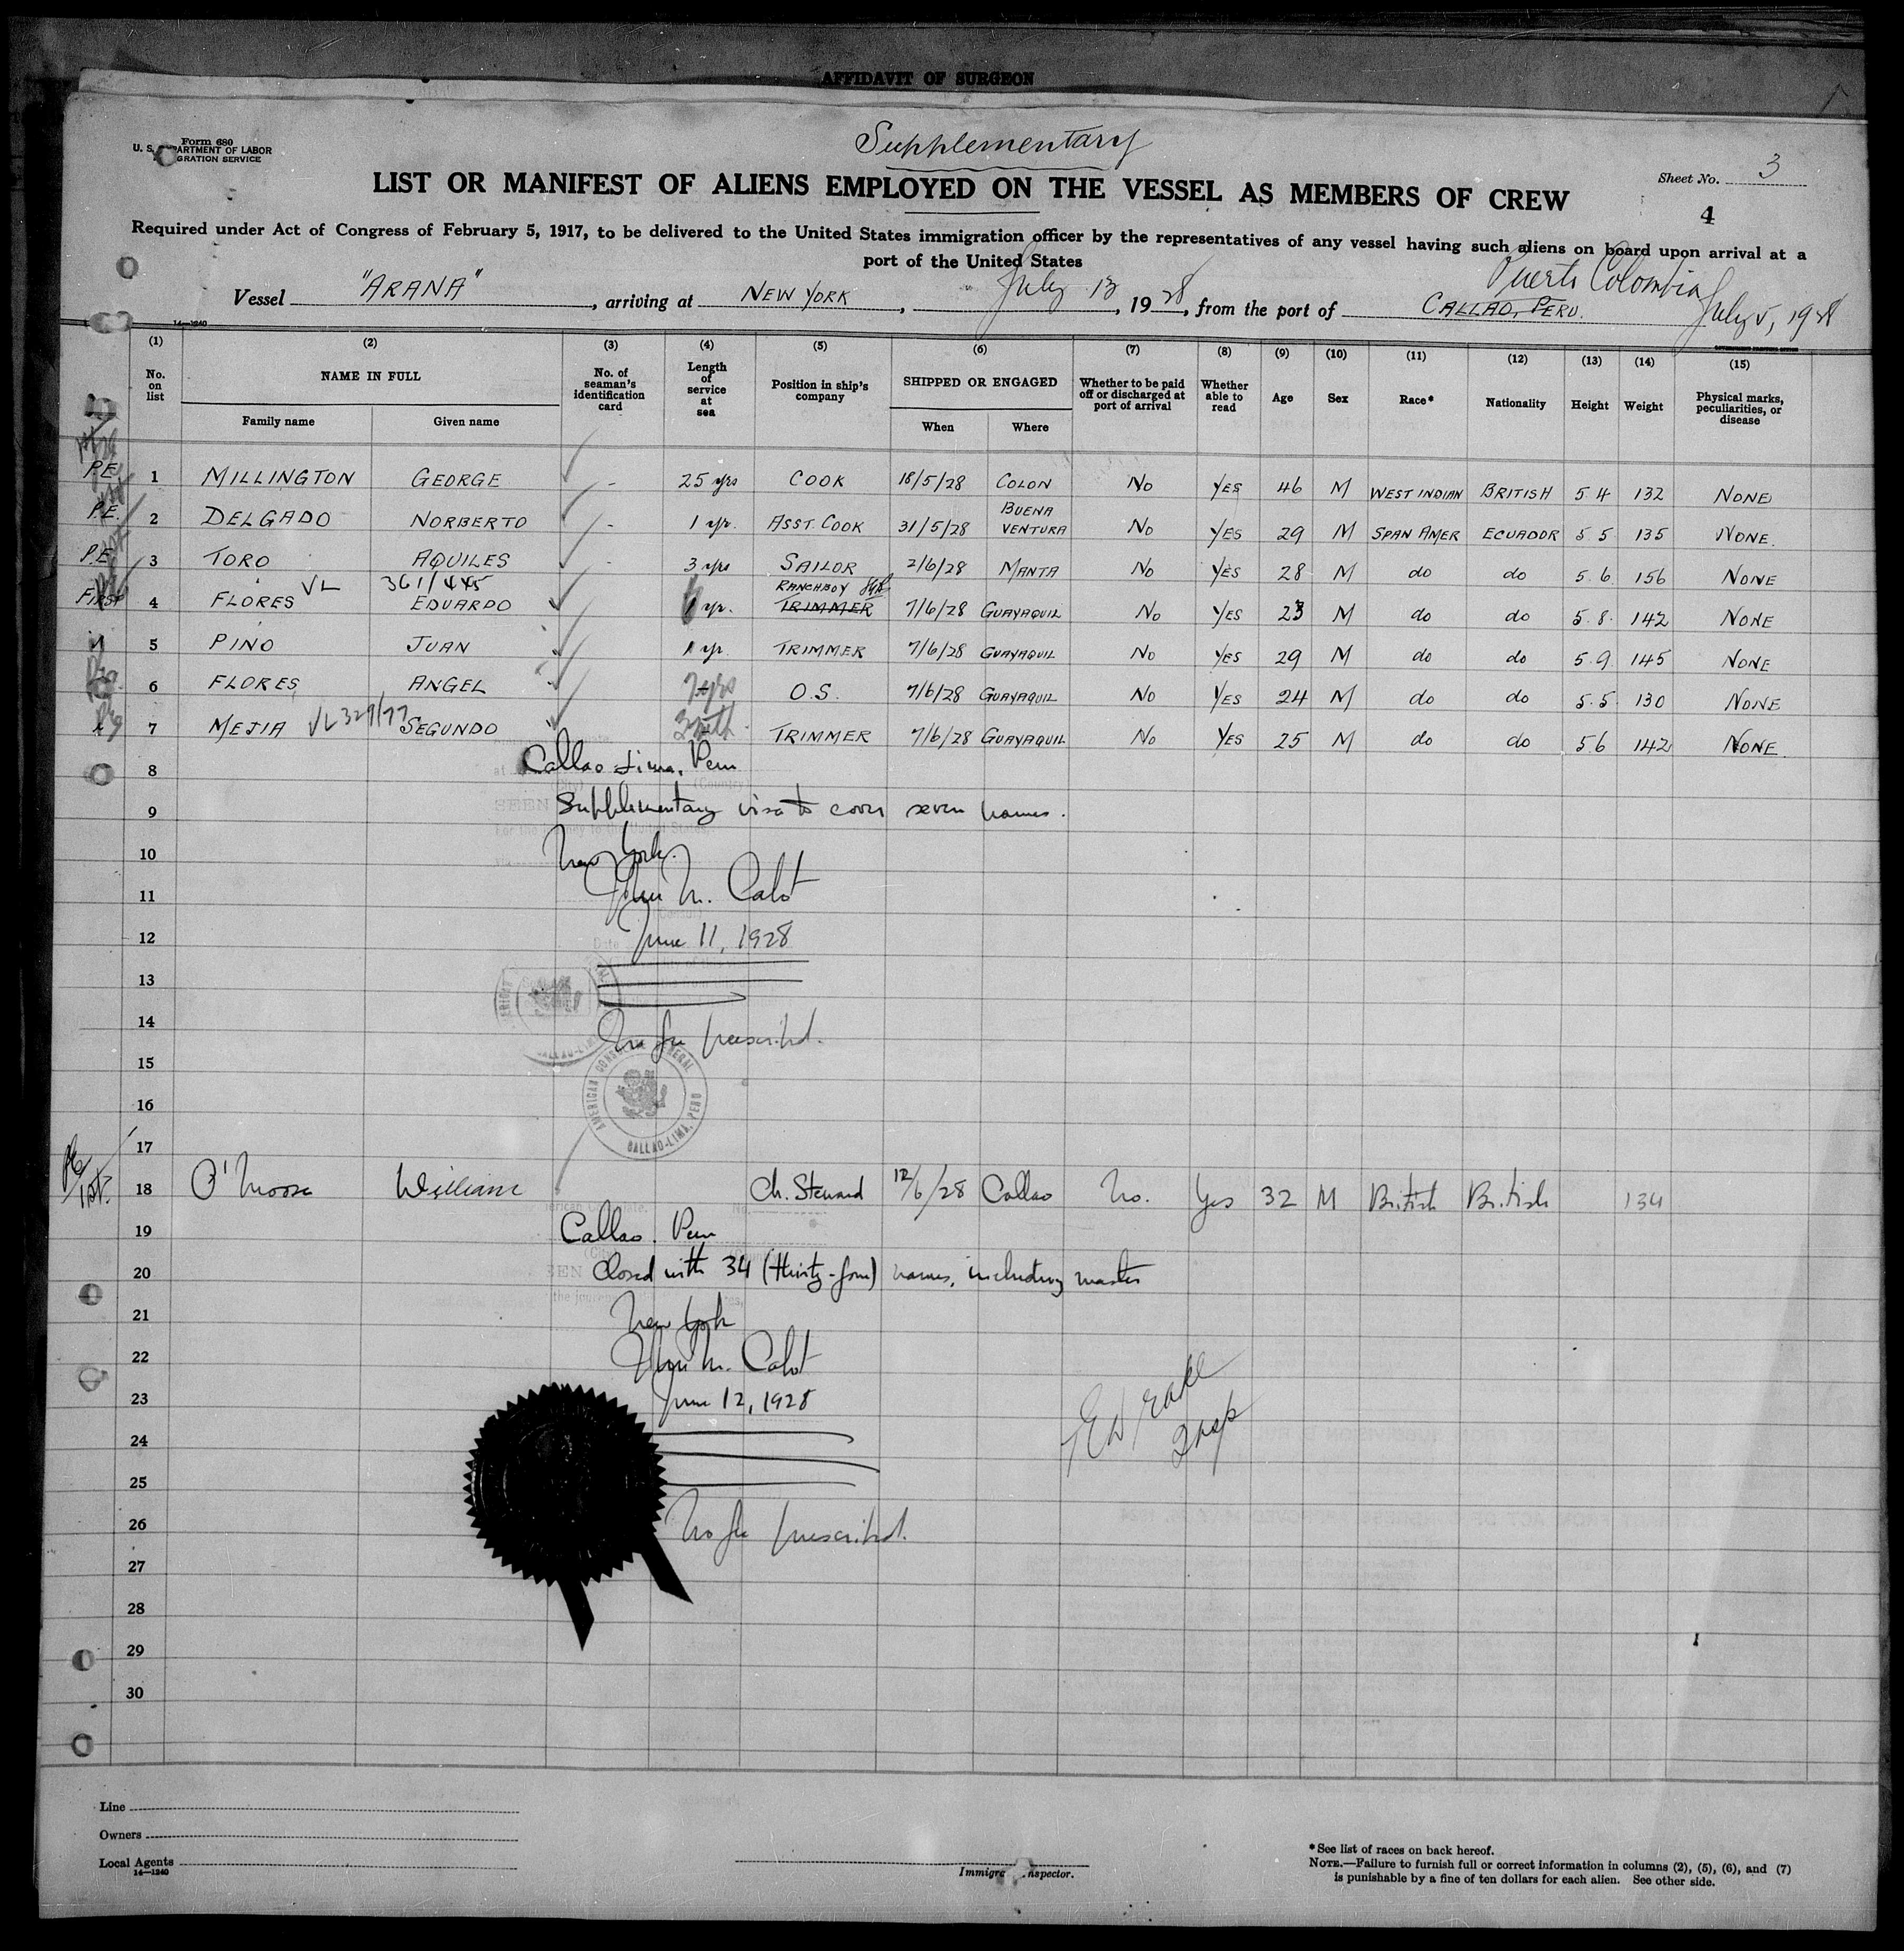 AFFIDAVIT OF SURGEON
Form 680
U. S. DEPARTMENT OF LABOR
IMMIGRATION SERVICE
Supplementary
LIST OR MANIFEST OF ALIENS EMPLOYED ON THE VESSEL AS MEMBERS OF CREW
Sheet No. 3
4
Required under Act of Congress of February 5, 1917, to be delivered to the United States immigration officer by the representatives of any vessel having such aliens on board upon arrival at a
port of the United States
Puerto Colombia July 5, 1928
Vessel "ARANA", arriving at NEW YORK, July 13, 1928, from the port of CALLAO, PERU.
14—1240
(1) (2) (3) (4) (5) (6) (7) (8) (9) (10) (11) (12) (13) (14) (15)
No. on list NAME IN FULL No. of seaman's identification card Length of service at sea Position in ship's company SHIPPED OR ENGAGED Whether to be paid off or discharged at port of arrival Whether able to read Age Sex Race* Nationality Height Weight Physical marks, peculiarities, or disease
Family name Given name When Where
P.E. 1 MILLINGTON GEORGE - 25 yrs COOK 18/5/28 COLON No YES 46 M WEST INDIAN BRITISH 5.4 132 NONE
P.E. 2 DELGADO NORBERTO - 1 yr. ASST. COOK 31/5/28 BUENA VENTURA No YES 29 M SPAN AMER ECUADOR 5 5 135 NONE.
P.E. 3 TORO AQUILES - 3 yrs SAILOR 2/6/28 MANTA No YES 28 M do do 5.6. 156 NONE
VL 361/445 RANCHBOY
FIRST 4 FLORES EDUARDO yr. TRIMMER 7/6/28 GUAYAQUIL No YES 23 M do do 5.8. 142 NONE
5 PINO JUAN 1 yr. TRIMMER 7/6/28 GUAYAQUIL No YES 29 M do do 5.9. 145 NONE
6 FLORES ANGEL O.S. 7/6/28 GUAYAQUIL No YES 24 M do do 5.5. 130 NONE
7 MEJIA VL 329/77 SEGUNDO TRIMMER 7/6/28 GUAYAQUIL No YES 25 M do do 5 6 142 NONE
8 Callao Lima, Peru
9 Supplementary visa to cover seven names.
10 New York.
11 John M. Cabot
12 June 11, 1928
13
14 No fee prescribed.
15
AMERICAN CONSULATE GENERAL
CALLAO-LIMA, PERU
16
17
1st. 18 O'Moore William Ch. Steward 12/6/28 Callao No. Yes 32 M British British 134
19 Callao. Peru
20 Closed with 34 (thirty-four) names, including master
21 New York
22 John M. Cabot
23 June 12, 1928
24
25
26 No fee prescribed.
27
28
29
30
Line
Owners
Local Agents
14—1240
Immigrant Inspector.
*See list of races on back hereof.
NOTE.—Failure to furnish full or correct information in columns (2), (5), (6), and (7)
is punishable by a fine of ten dollars for each alien. See other side.